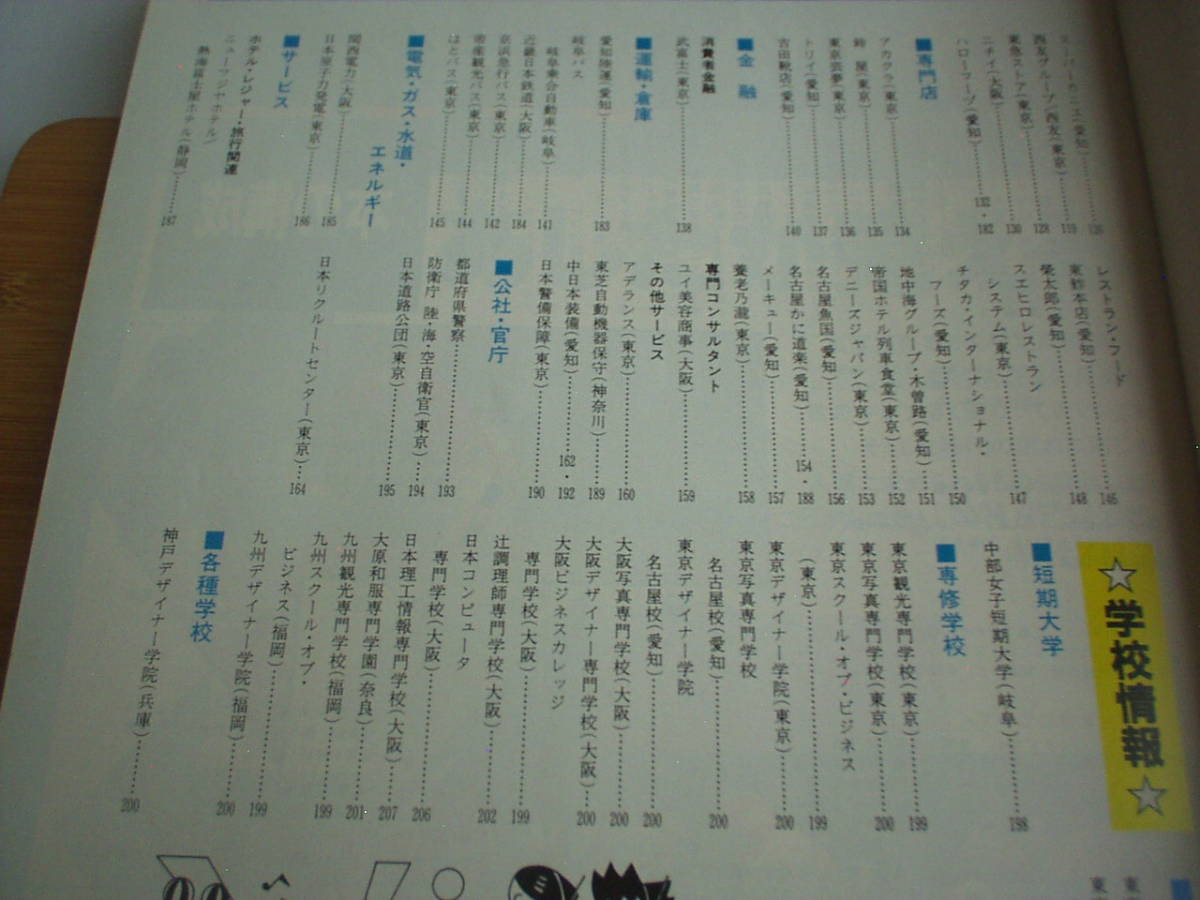 スーパーヤマナカ(愛知)……120
西友グループ(西友)(東京)……119
東急ストア(東京)……128
ニチイ(大阪)……130
ハローフーヅ(愛知)……132・182
■専門店
アカクラ(東京)……134
鈴屋(東京)……135
東京羽夢(東京)……136
トリイ(愛知)……137
吉田靴店(愛知)……140
■金融
消費者金融
武富士(東京)……138
■運輸・倉庫
愛知陸運(愛知)……183
岐阜バス
岐阜乗合自動車(岐阜)……141
近畿日本鉄道(大阪)……184
京浜急行バス(東京)……142
帝産観光バス(東京)……144
はとバス(東京)……145
■電気・ガス・水道・
エネルギー
関西電力(大阪)……185
日本原子力発電(東京)……186
■サービス
ホテル・レジャー・旅行関連
ニューフジヤホテル/
熱海富士屋ホテル(静岡)……187
レストラン・フード
東鮓本店(愛知)……146
榮太郎(愛知)……148
スエヒロレストラン
システム(東京)……147
チタカ・インターナショナル・
フーズ(愛知)……150
地中海グループ・木曽路(愛知)……151
帝国ホテル列車食堂(東京)……152
デニーズジャパン(東京)……153
名古屋魚国(愛知)……156
名古屋かに道楽(愛知)……154・188
メーキュー(愛知)……157
養老乃瀧(東京)……158
専門コンサルタント
ユイ美容商事(大阪)……159
その他サービス
アデランス(東京)……160
東芝自動機器保守(神奈川)……189
中日本装備(愛知)……162・192
日本警備保障(東京)……190
■公社・官庁
都道府県警察……193
防衛庁 陸・海・空自衛官(東京)……194
日本道路公団(東京)……195
日本リクルートセンター(東京)……164
☆学校情報☆
■短期大学
中部女子短期大学(岐阜)……198
■専修学校
東京観光専門学校(東京)……199
東京写真専門学校(東京)……200
東京スクール・オブ・ビジネス
(東京)……199
東京デザイナー学院(東京)……200
東京写真専門学校
名古屋校(愛知)……200
東京デザイナー学院
名古屋校(愛知)……200
大阪写真専門学校(大阪)……200
大阪デザイナー専門学校(大阪)……200
大阪ビジネスカレッジ
専門学校(大阪)……199
辻調理師専門学校(大阪)……202
日本コンピュータ
専門学校(大阪)……206
日本理工情報専門学校(大阪)……207
大原和服専門学園(奈良)……201
九州観光専門学校(福岡)……199
九州スクール・オブ・
ビジネス(福岡)……199
九州デザイナー学院(福岡)……200
■各種学校
神戸デザイナー学院(兵庫)……200